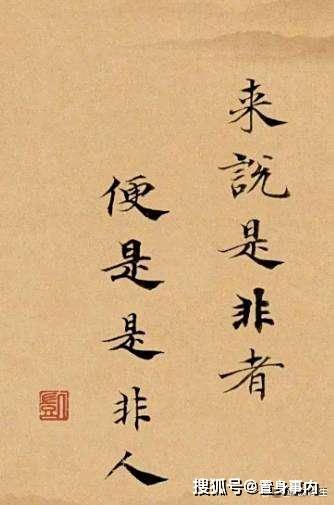 来説是非者
便是是非人
搜狐号@置身事内